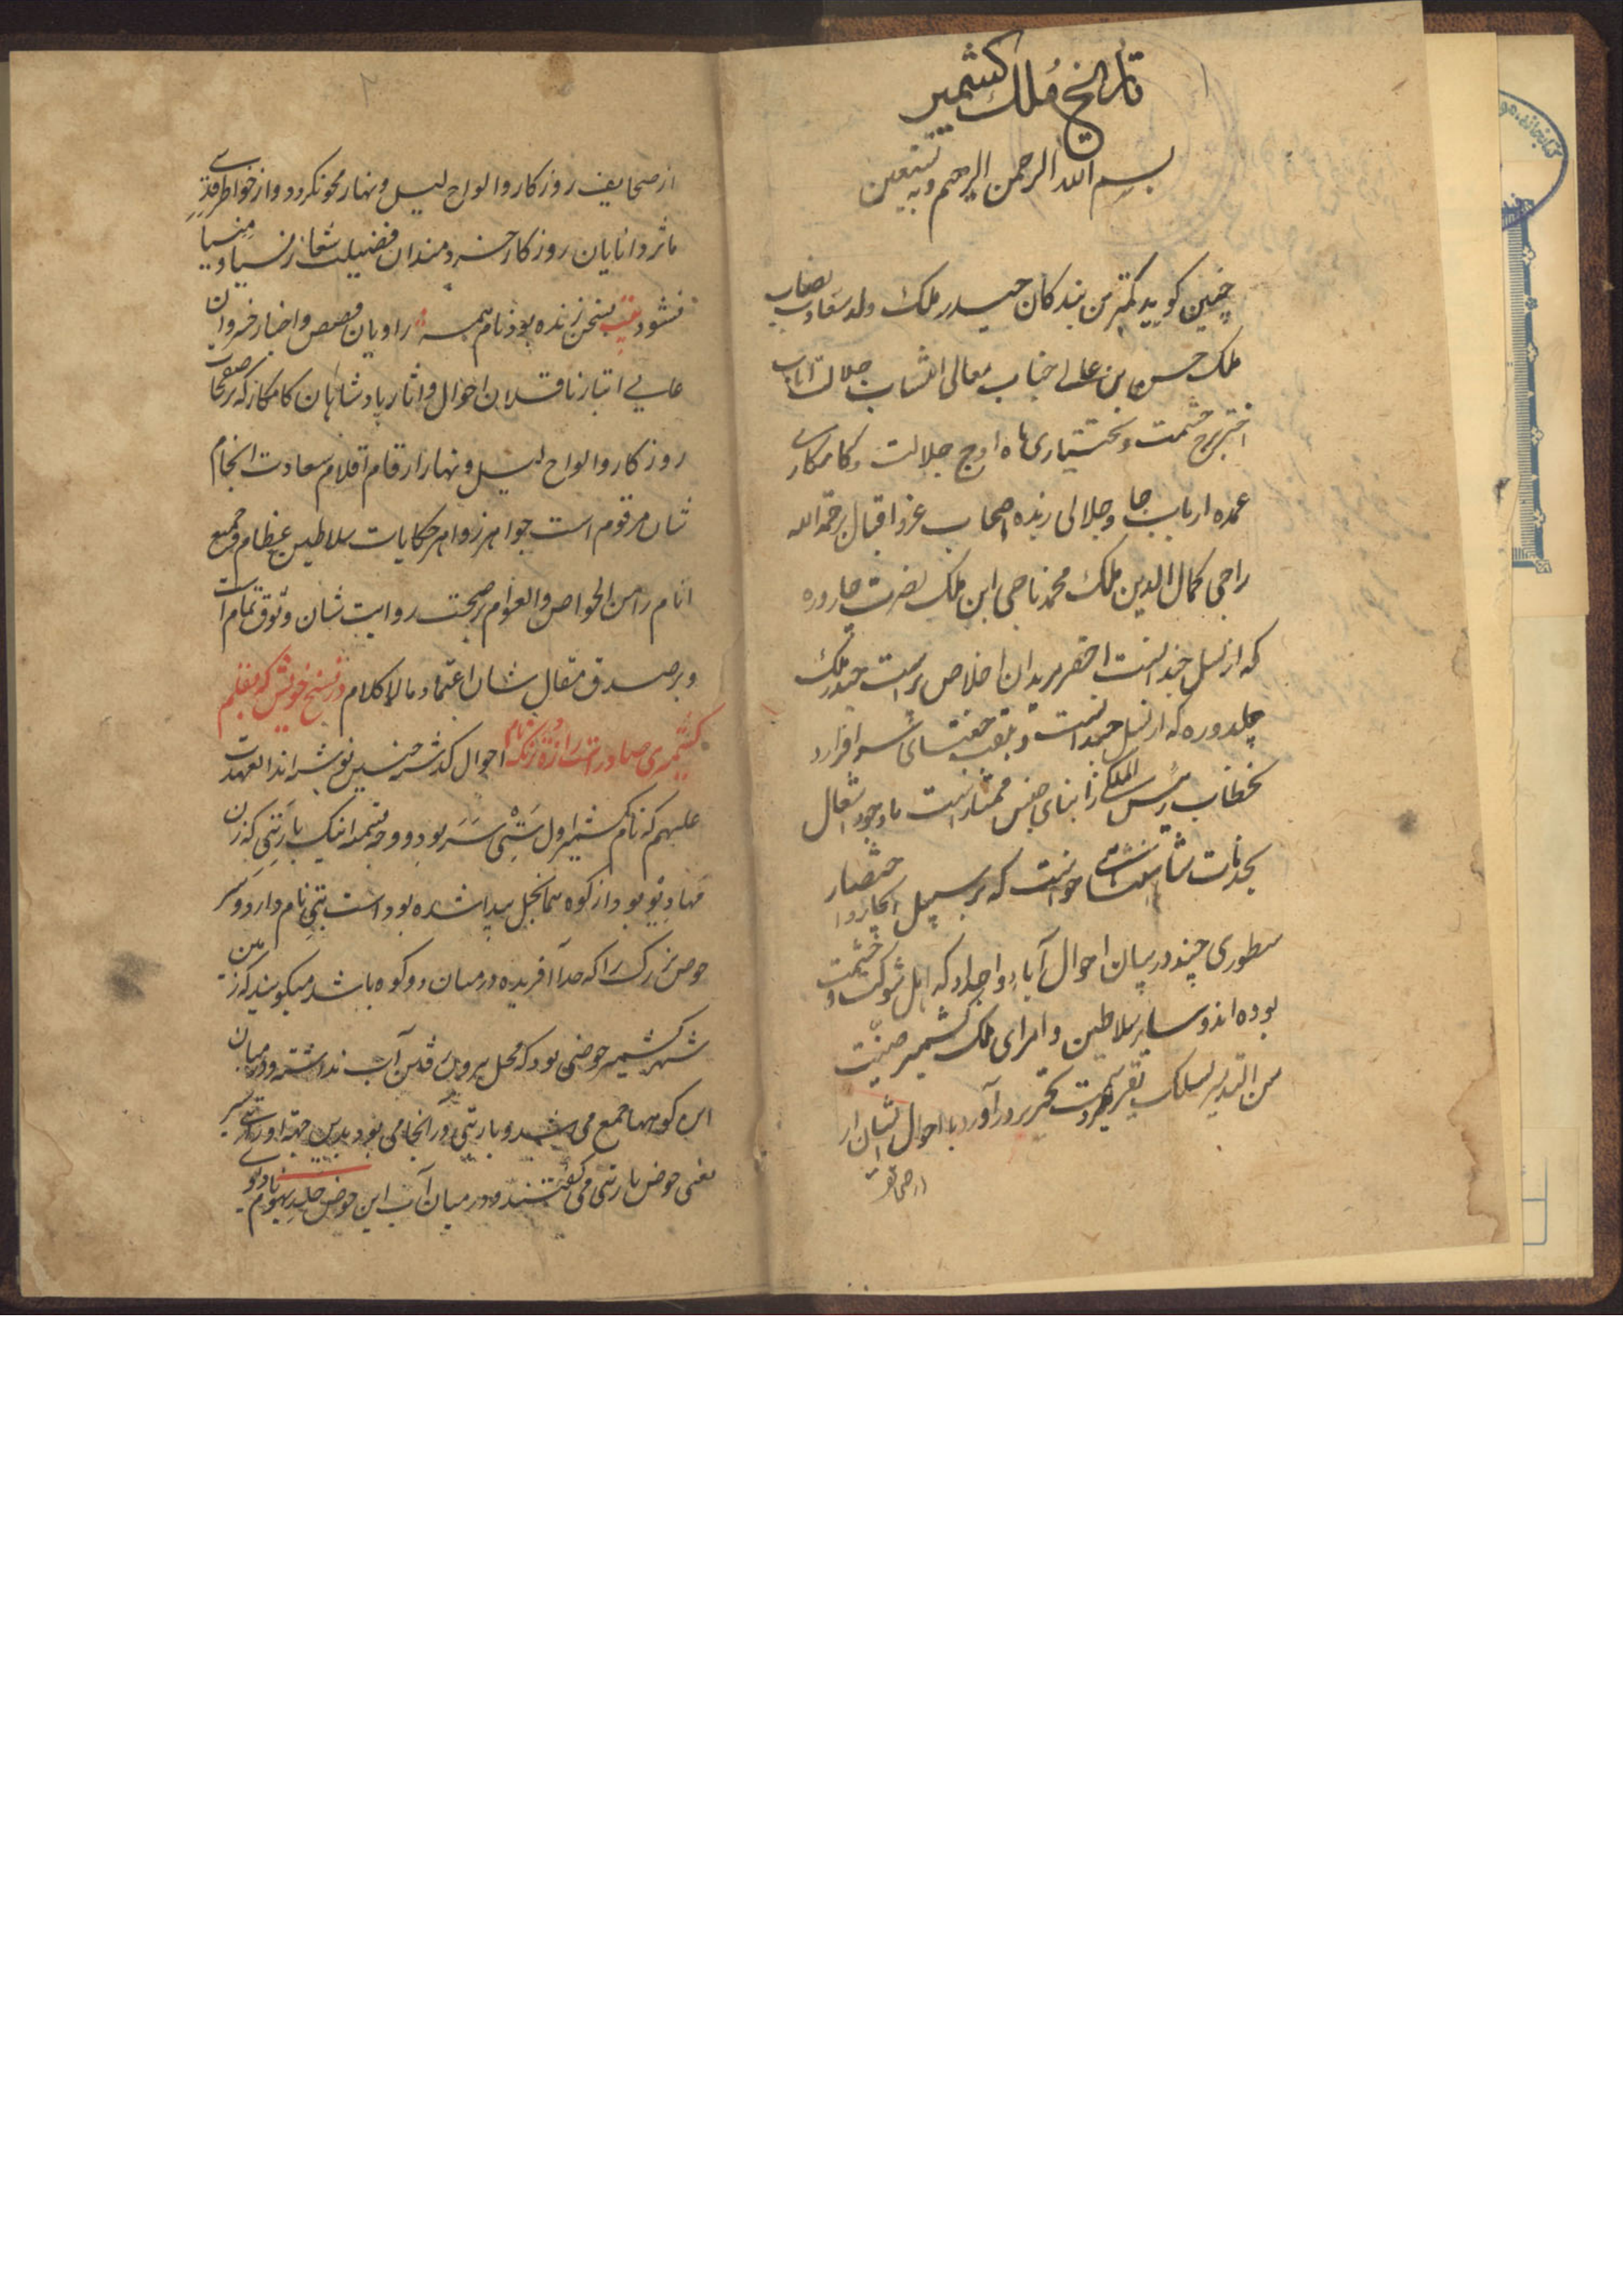 تاریخ ملک کشمیر
بسم الله الرحمن الرحیم وبه نستعین
چنین کوید کمترین بندکان حیدر ملک ولد سعادت نصاب
ملک حسن ابن عالی جناب معالی انتساب جلالت اناب
اختر برج حشمت و بختیاری ماه اوج جلالت و کامکاری
عمده ارباب جا و جلالی زبده اصحاب عز و اقبال برحمة الله
راجی کمال الدین ملک محمد ناجی ابن ملک نصرت چاروره
که از نسل چند است احقر مریدان اخلاص پرست حیدر ملک
چادوره که از نسل چند است و بلقب چغتای سرافراز و
بخطاب رئیس الملکی از ابنای جنس ممتاز است با وجود اشتغال
بخدمات شایسته خواست که بر سبیل ایجاز و اختصار
سطوری چند در بیان احوال آباء و اجداد که اهل شوکت و حشمت
بوده اند و سایر سلاطین و امرای ملک کشمیر صینت
من التدمیر بسلک تقریر و سمت تحریر در آورد تا احوال ایشان از
از صحایف
از صحایف روزکار و الواح لیل و نهار محو نکردد و از خواطر قدسی
ماثر دانایان روزکار خردمندان فضیلت شعار نسیا و منسیا
نشود بیت بسخن زنده بود نام همه راویان قصص و اخبار خسروان
عالی اتبار ناقلان احوال و اثار پادشاهان کامکار که بر صفحات
روزکار و الواح لیل و نهار ارقام اقلام سعادت انجام
شان مرقوم است جواهر زواهر حکایات سلاطین عظام و جمیع
انام را من الخواص والعوام بر صحت روایت شان وثوق تمام است
و بر صدق مقال شان اعتماد مالا کلام در نسخ خویش که بقلم
کشمیری صادر است رازه ترنک نام احوال کذشته چنین نوشته اند العهدت
علیهم که نام کشمیر اول ستی سر بود و وجه تسمیه اینکه پاربتی که زن
مهادیو بود از کوه هماچل پیدا شده بود است ستی نام دارد و سر
حوض بزرک را که خدا آفریده در میان دو کوه باشد میکویند که زمین
شهر کشمیر حوضی بود که محل بیرون رفتن آب نداشته و در میان
این کوهها جمع می شد و پاربتی در انجا می بود بدین جهة او را ستی سر
یعنی حوض پاربتی می کفتند و در میان آب این حوض جلدیو نام دیوی